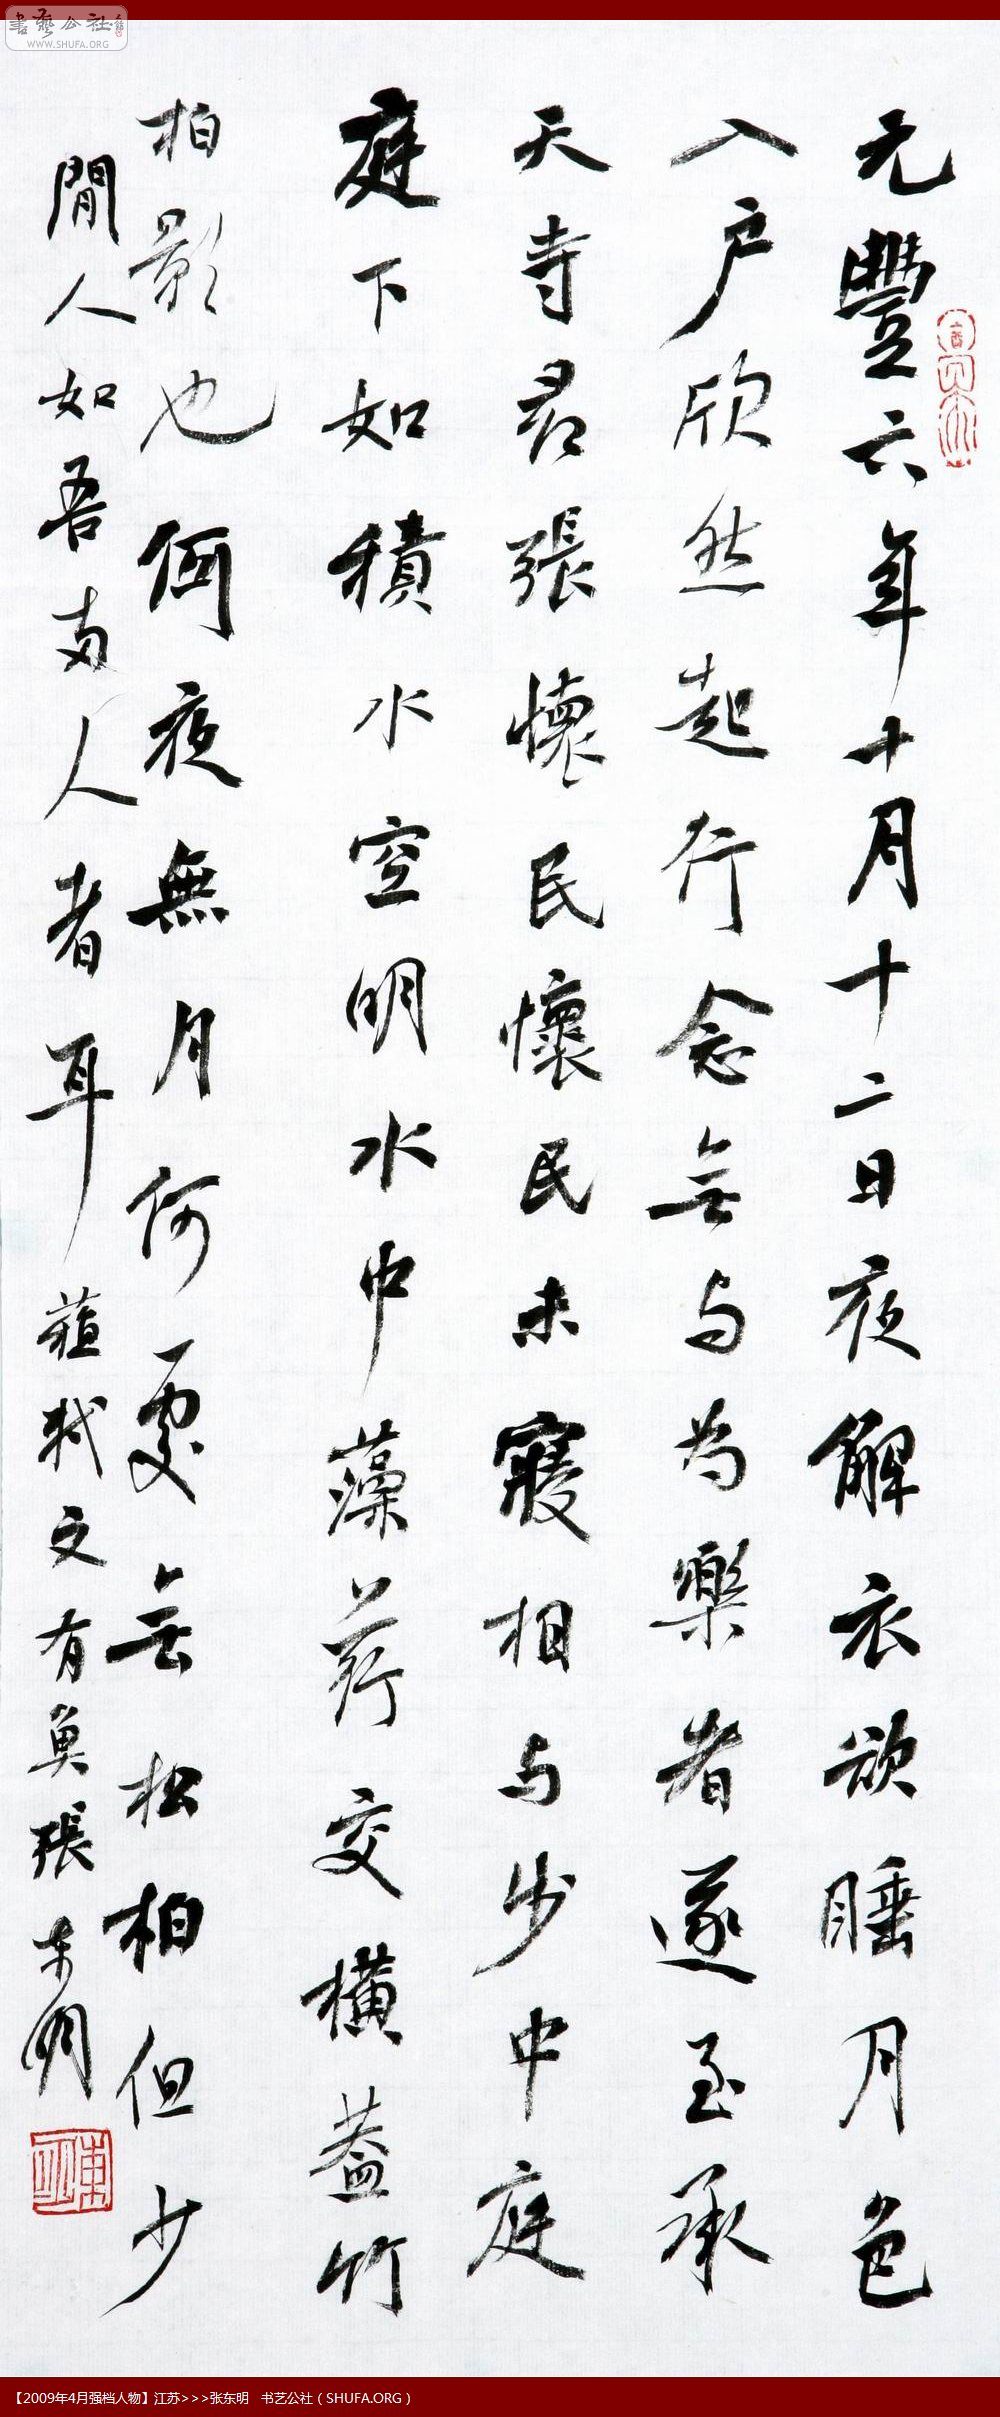 書藝公社
WWW.SHUFA.ORG
元豐六年十月十二日夜解衣欲睡月色
入户欣然起行念无与为樂者遂至承
天寺尋張懷民懷民未寢相与步中庭
庭下如積水空明水中藻荇交橫蓋竹
柏影也何夜無月何處无松柏但少
閒人如吾两人者耳
蘓軾文有奂張东明
東明
【2009年4月强档人物】江苏>>>张东明 书艺公社（SHUFA.ORG）